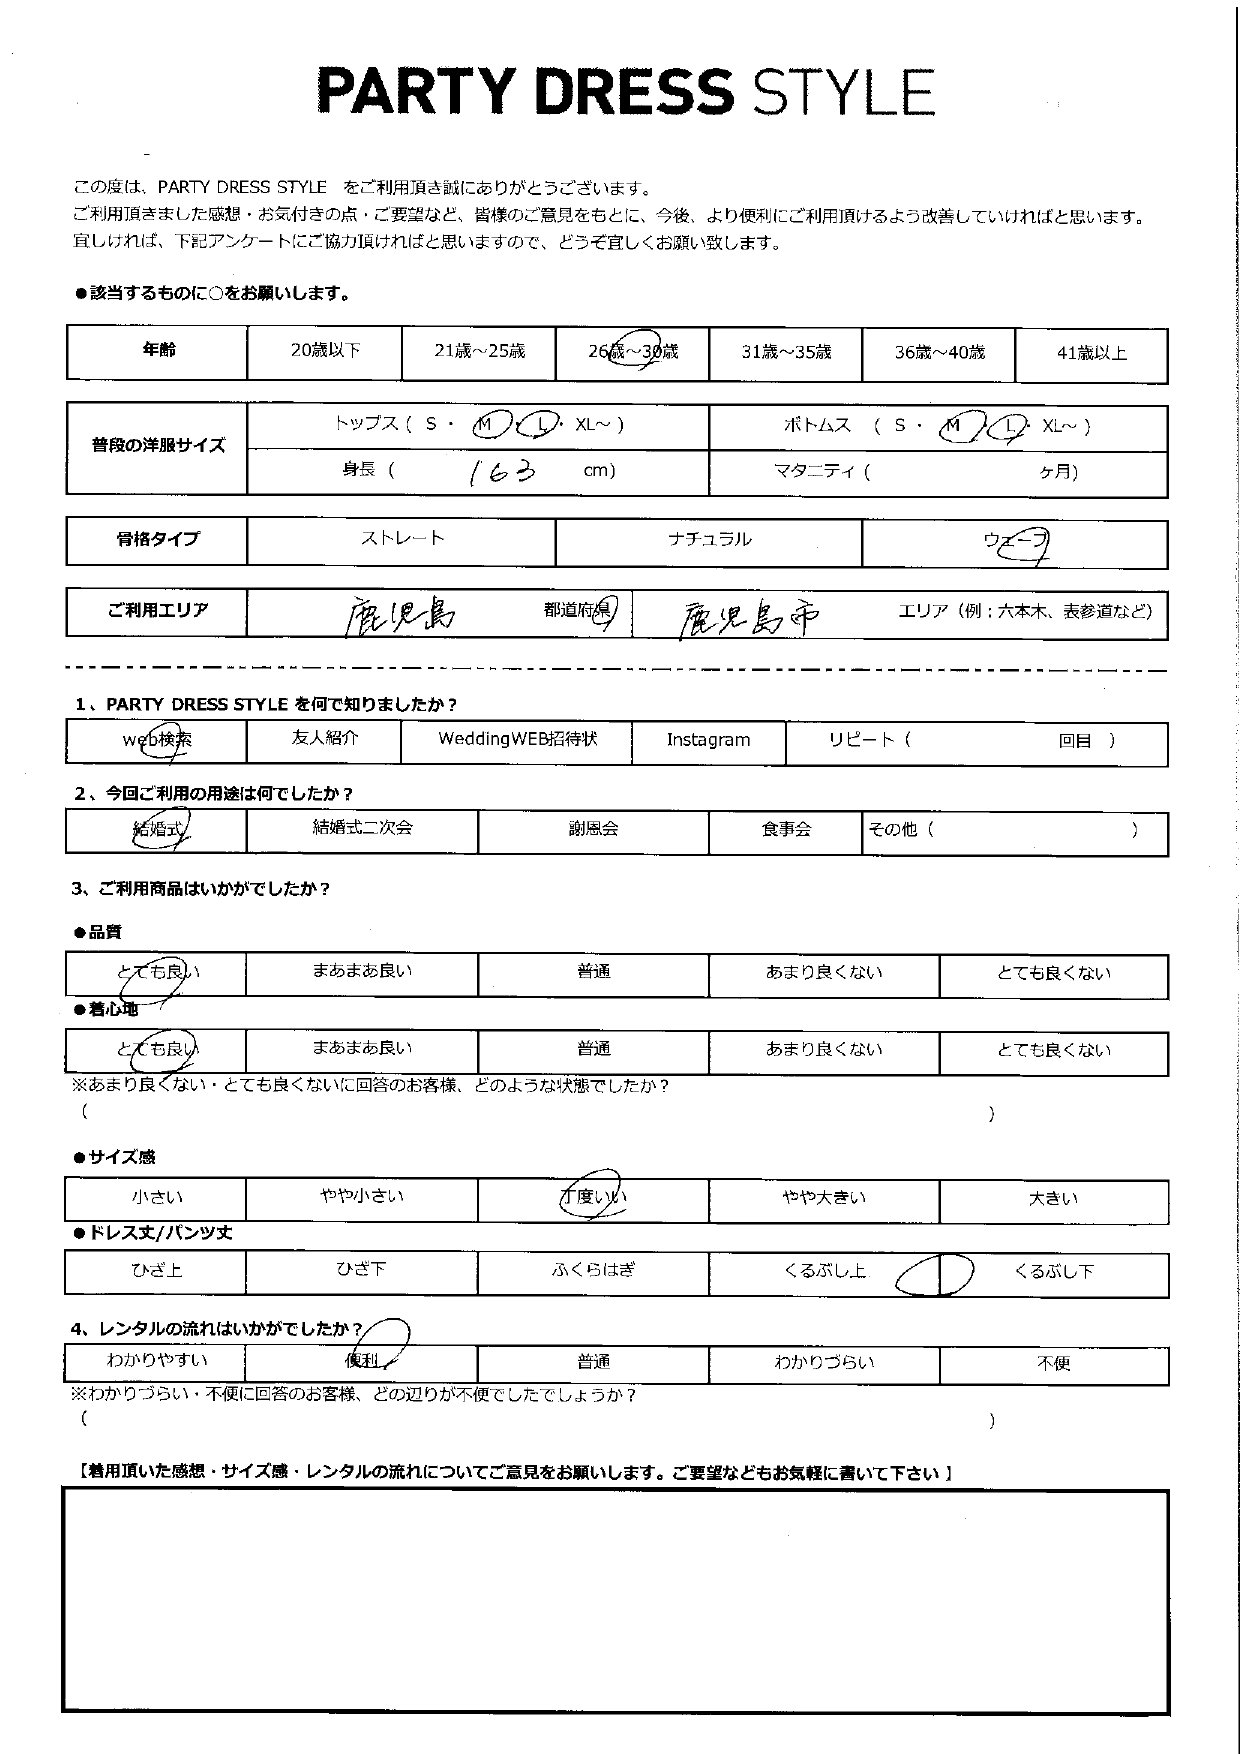 PARTY DRESS STYLE
この度は、PARTY DRESS STYLE をご利用頂き誠にありがとうございます。
ご利用頂きました感想・お気付きの点・ご要望など、皆様のご意見をもとに、今後、より便利にご利用頂けるよう改善していければと思います。
宜しければ、下記アンケートにご協力頂ければと思いますので、どうぞ宜しくお願い致します。
●該当するものに○をお願いします。
年齢 20歳以下 21歳～25歳 26歳～30歳 31歳～35歳 36歳～40歳 41歳以上
普段の洋服サイズ トップス ( S ・ M ・ L ・ XL～ ) ボトムス ( S ・ M ・ L ・ XL～ )
身長 ( 163 cm) マタニティ ( ヶ月)
骨格タイプ ストレート ナチュラル ウェーブ
ご利用エリア 鹿児島 都道府県 鹿児島市 エリア（例；六本木、表参道など）
1、PARTY DRESS STYLE を何で知りましたか？
web検索 友人紹介 WeddingWEB招待状 Instagram リピート ( 回目 )
2、今回ご利用の用途は何でしたか？
結婚式 結婚式二次会 謝恩会 食事会 その他 ( )
3、ご利用商品はいかがでしたか？
●品質
とても良い まあまあ良い 普通 あまり良くない とても良くない
●着心地
とても良い まあまあ良い 普通 あまり良くない とても良くない
※あまり良くない・とても良くないに回答のお客様、どのような状態でしたか？
( )
●サイズ感
小さい やや小さい 丁度いい やや大きい 大きい
●ドレス丈/パンツ丈
ひざ上 ひざ下 ふくらはぎ くるぶし上 くるぶし下
4、レンタルの流れはいかがでしたか？
わかりやすい 便利 普通 わかりづらい 不便
※わかりづらい・不便に回答のお客様、どの辺りが不便でしたでしょうか？
( )
【着用頂いた感想・サイズ感・レンタルの流れについてご意見をお願いします。ご要望などもお気軽に書いて下さい 】